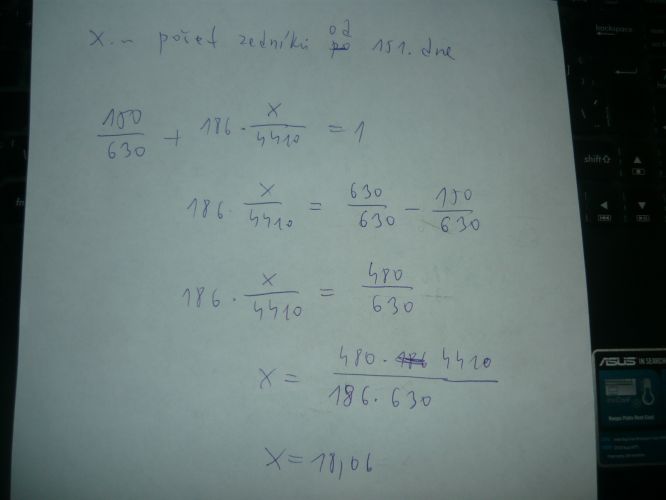 x ... počet zedníků od po 151. dne
150/630 + 186 · x/4410 = 1
186 · x/4410 = 630/630 - 150/630
186 · x/4410 = 480/630
x = 480 · 186 4410 / 186 · 630
x = 18,06
backspace
shift
ASUS IN SEARCH